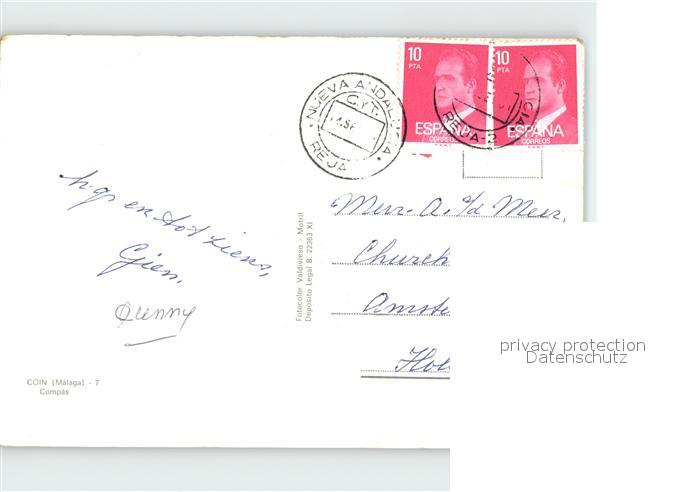 10
PTA
ESPAÑA
CORREOS
10
PTA
ESPAÑA
CORREOS
NUEVA ANDALUCIA
C.Y.T.
REJA
REJA-2
h.gr en tot ziens,
Gien.
Quenny
Fotocolor Valdivieso - Motril
Depósito Legal B. 22363 XI
Mevr. A. v/d Meer,
Church
Amste
Hol
privacy protection
Datenschutz
COIN (Málaga) - 7
Compás